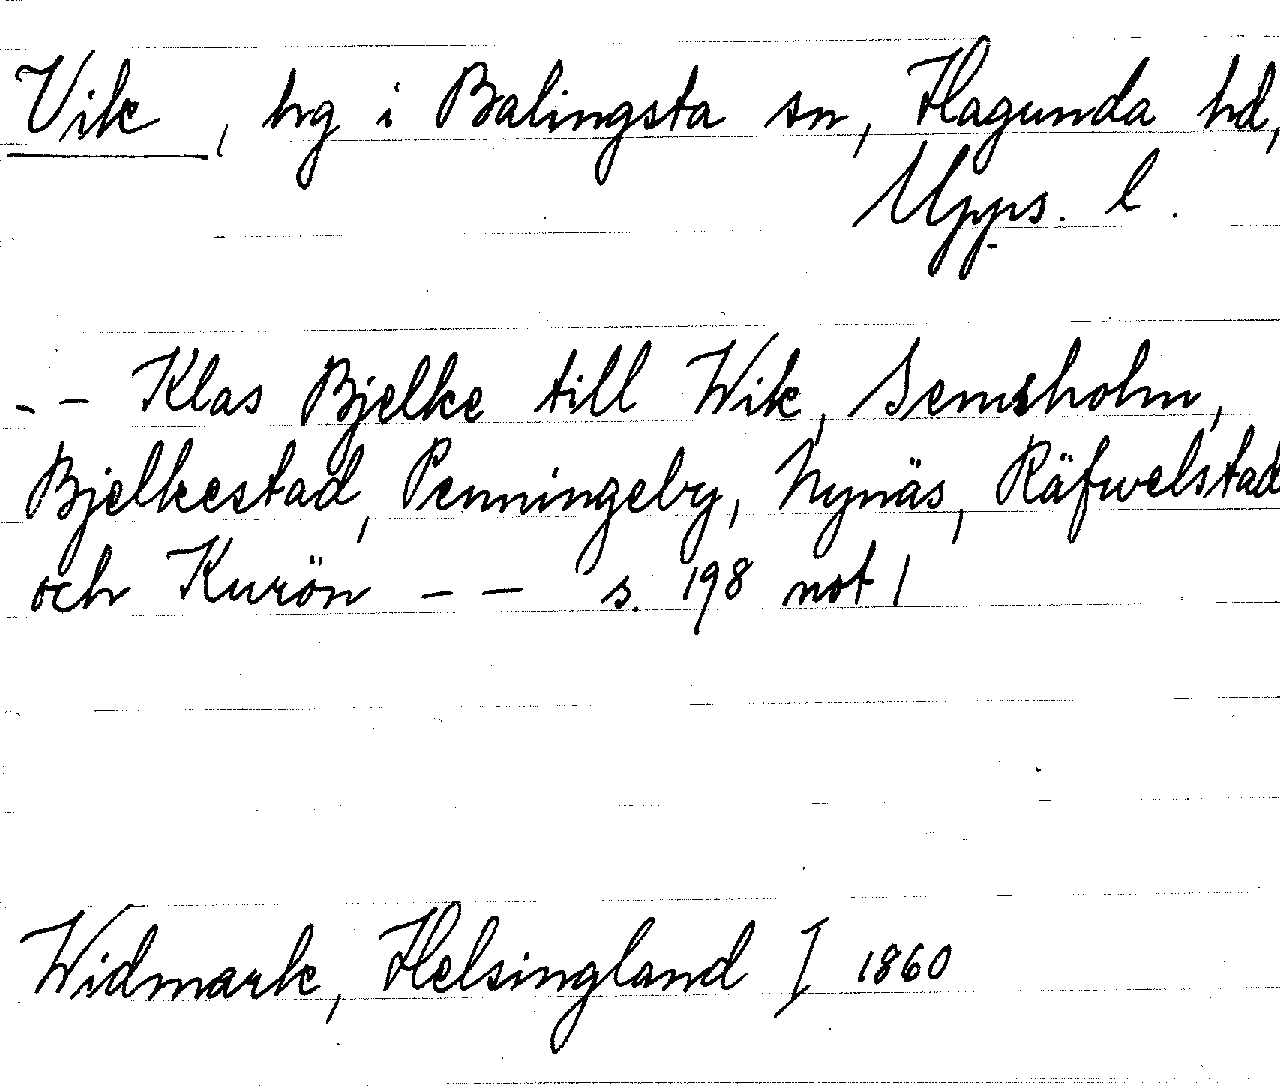 Vik, hg i Balingsta sn, Hagunda hd,
Upps. l.
-- Klas Bjelke till Wik, Semsholm,
Bjelkestad, Penningeby, Nynäs, Räfwelstad
och Kurön -- s. 198 not 1
Widmark, Helsingland I 1860